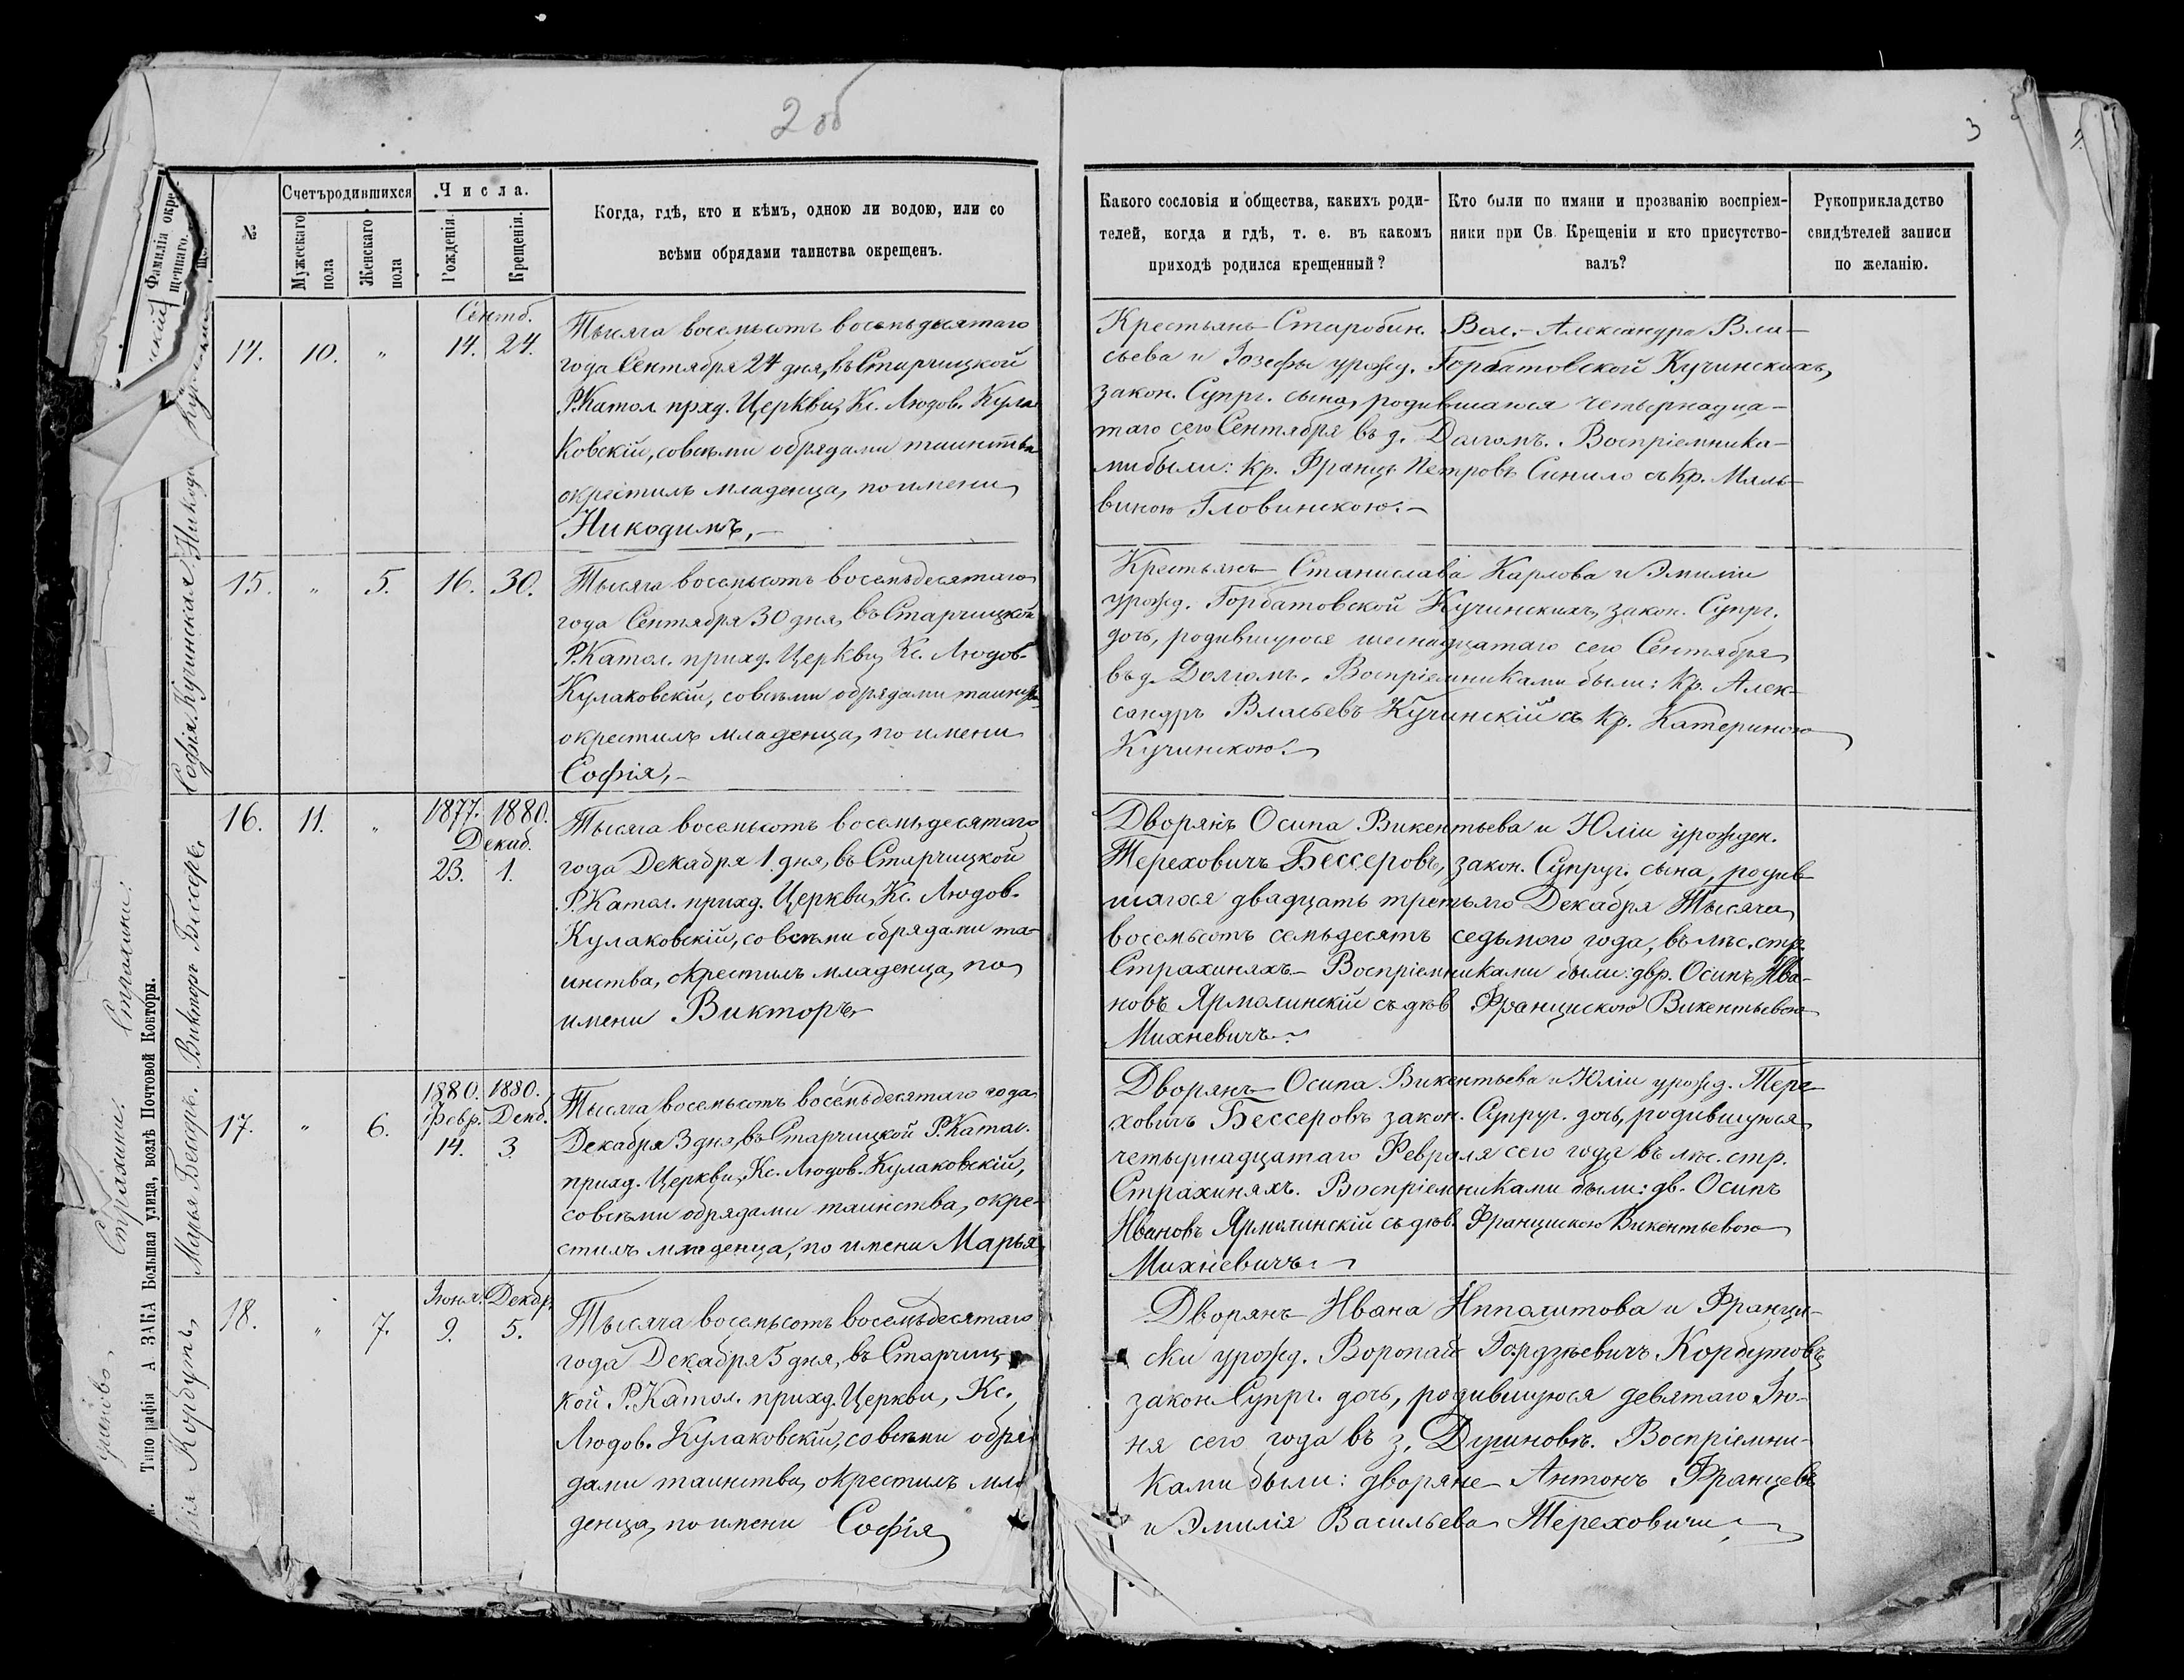 2 об
3
Фамилія окре-
щеннаго.
№
Счетъ родившихся
Мужескаго
пола
Женскаго
пола
Числа.
Рожденія.
Крещенія.
Когда, гдѣ, кто и кѣмъ, одною ли водою, или со
всѣми обрядами таинства окрещенъ.
Какого сословія и общества, какихъ роди-
телей, когда и гдѣ, т. е. въ какомъ
приходѣ родился крещенный?
Кто были по имяни и прозванію воспріем-
ники при Св. Крещеніи и кто присутство-
валъ?
Рукоприкладство
свидѣтелей записи
по желанію.
14. 10. " Сентб. 14. 24.
Тысяча восемьсотъ восемьдесятаго
года Сентября 24 дня, въ Старчицкой
Р.Катол. прхд. Церкви, Кс. Людов. Кула
ковскій, со всѣми обрядами таинства
окрестилъ младенца, по имени
Никодимъ,–
Крестьянъ Старобин. Вол.– Александра Вла-
сьева и Іозефы урожд. Горбатовской Кучинскихъ,
закон. Супрг. сына, родившагося четырнадца-
таго сего Сентября въ д. Долгомъ. Воспріемника-
ми были: кр. Францъ Петровъ Синило съ кр. Маль-
виною Гловинскою.–
Софія Кучинская
15. " 5. 16. 30.
Тысяча восемьсотъ восемьдесятаго
года Сентября 30 дня, въ Старчицкой
Р.Катол. приход. Церкви, Кс. Людов.
Кулаковскій, со всѣми обрядами таинства
окрестилъ младенца, по имени
Софія,–
Крестьянъ Станислава Карлова и Эмиліи
урожд. Горбатовской Кучинскихъ, закон. Супрг.
дочь, родившуюся шестнадцатаго сего Сентября
въ д. Долгомъ. Воспріемниками были: кр. Алек-
сандръ Власьевъ Кучинскій съ кр. Катериною
Кучинскою.–
Викторъ Бессеръ.
16. 11. " 1877. 1880.
Декаб.
23. 1.
Тысяча восемьсотъ восемьдесятаго
года Декабря 1. дня, въ Старчицкой
Р.Катол. приход. Церкви, Кс. Людов.
Кулаковскій, со всѣми обрядами та-
инства, окрестилъ младенца, по
имени Викторъ,–
Дворянъ Осипа Викентьева и Юліи урожден.
Тереховичъ Бессеровъ, закон. Супруг. сына, родив-
шагося двадцать третьяго Декабря Тысяча
восемьсотъ семьдесятъ седьмого года, въ лѣс. стр.
Страхиняхъ.– Воспріемниками были: двр. Осипъ Ива-
новъ Ярмолинскій съ дѣв. Францискою Викентьевою
Михневичъ.–
Марья Бессеръ.
17. " 6. 1880. 1880.
Февр. Декб.
14. 3.
Тысяча восемьсотъ восемьдесятаго года
Декабря 3 дня, въ Старчицкой Р.Катол.
приход. Церкви, Кс. Людов. Кулаковскій,
со всѣми обрядами таинства, окре-
стилъ младенца, по имени Марья,
Дворянъ Осипа Викентьева и Юліи урожд. Тере-
ховичъ Бессеровъ закон. Супруг. дочь, родившуюся
четырнадцатаго Февраля сего года въ лѣс. стр.
Страхиняхъ. Воспріемниками были: дв. Осипъ
Ивановъ Ярмолинскій съ дѣв. Францискою Викентьевою
Михневичъ.–
Корбутъ,
18. " 7. Іюня. Декбр.
9. 5.
Тысяча восемьсотъ восемьдесятаго
года Декабря 5 дня, въ Старчиц-
кой Р.Катол. приход. Церкви, Кс.
Людов. Кулаковскій, со всѣми обря
дами таинства, окрестилъ мла
денца, по имени Софія
Дворянъ Ивана Ипполитова и Францис-
ски урожд. Воропай Гордзѣевичъ Корбутовъ
закон. Супрг. дочь, родившуюся девятаго Ію-
ня сего года въ з. Душновѣ. Воспріемни-
ками были: дворяне Антонъ Францевъ
и Эмилія Васильева Тереховичи,
Страхини.
Типографія А ЗАКА Большая улица, возлѣ Почтовой Конторы.